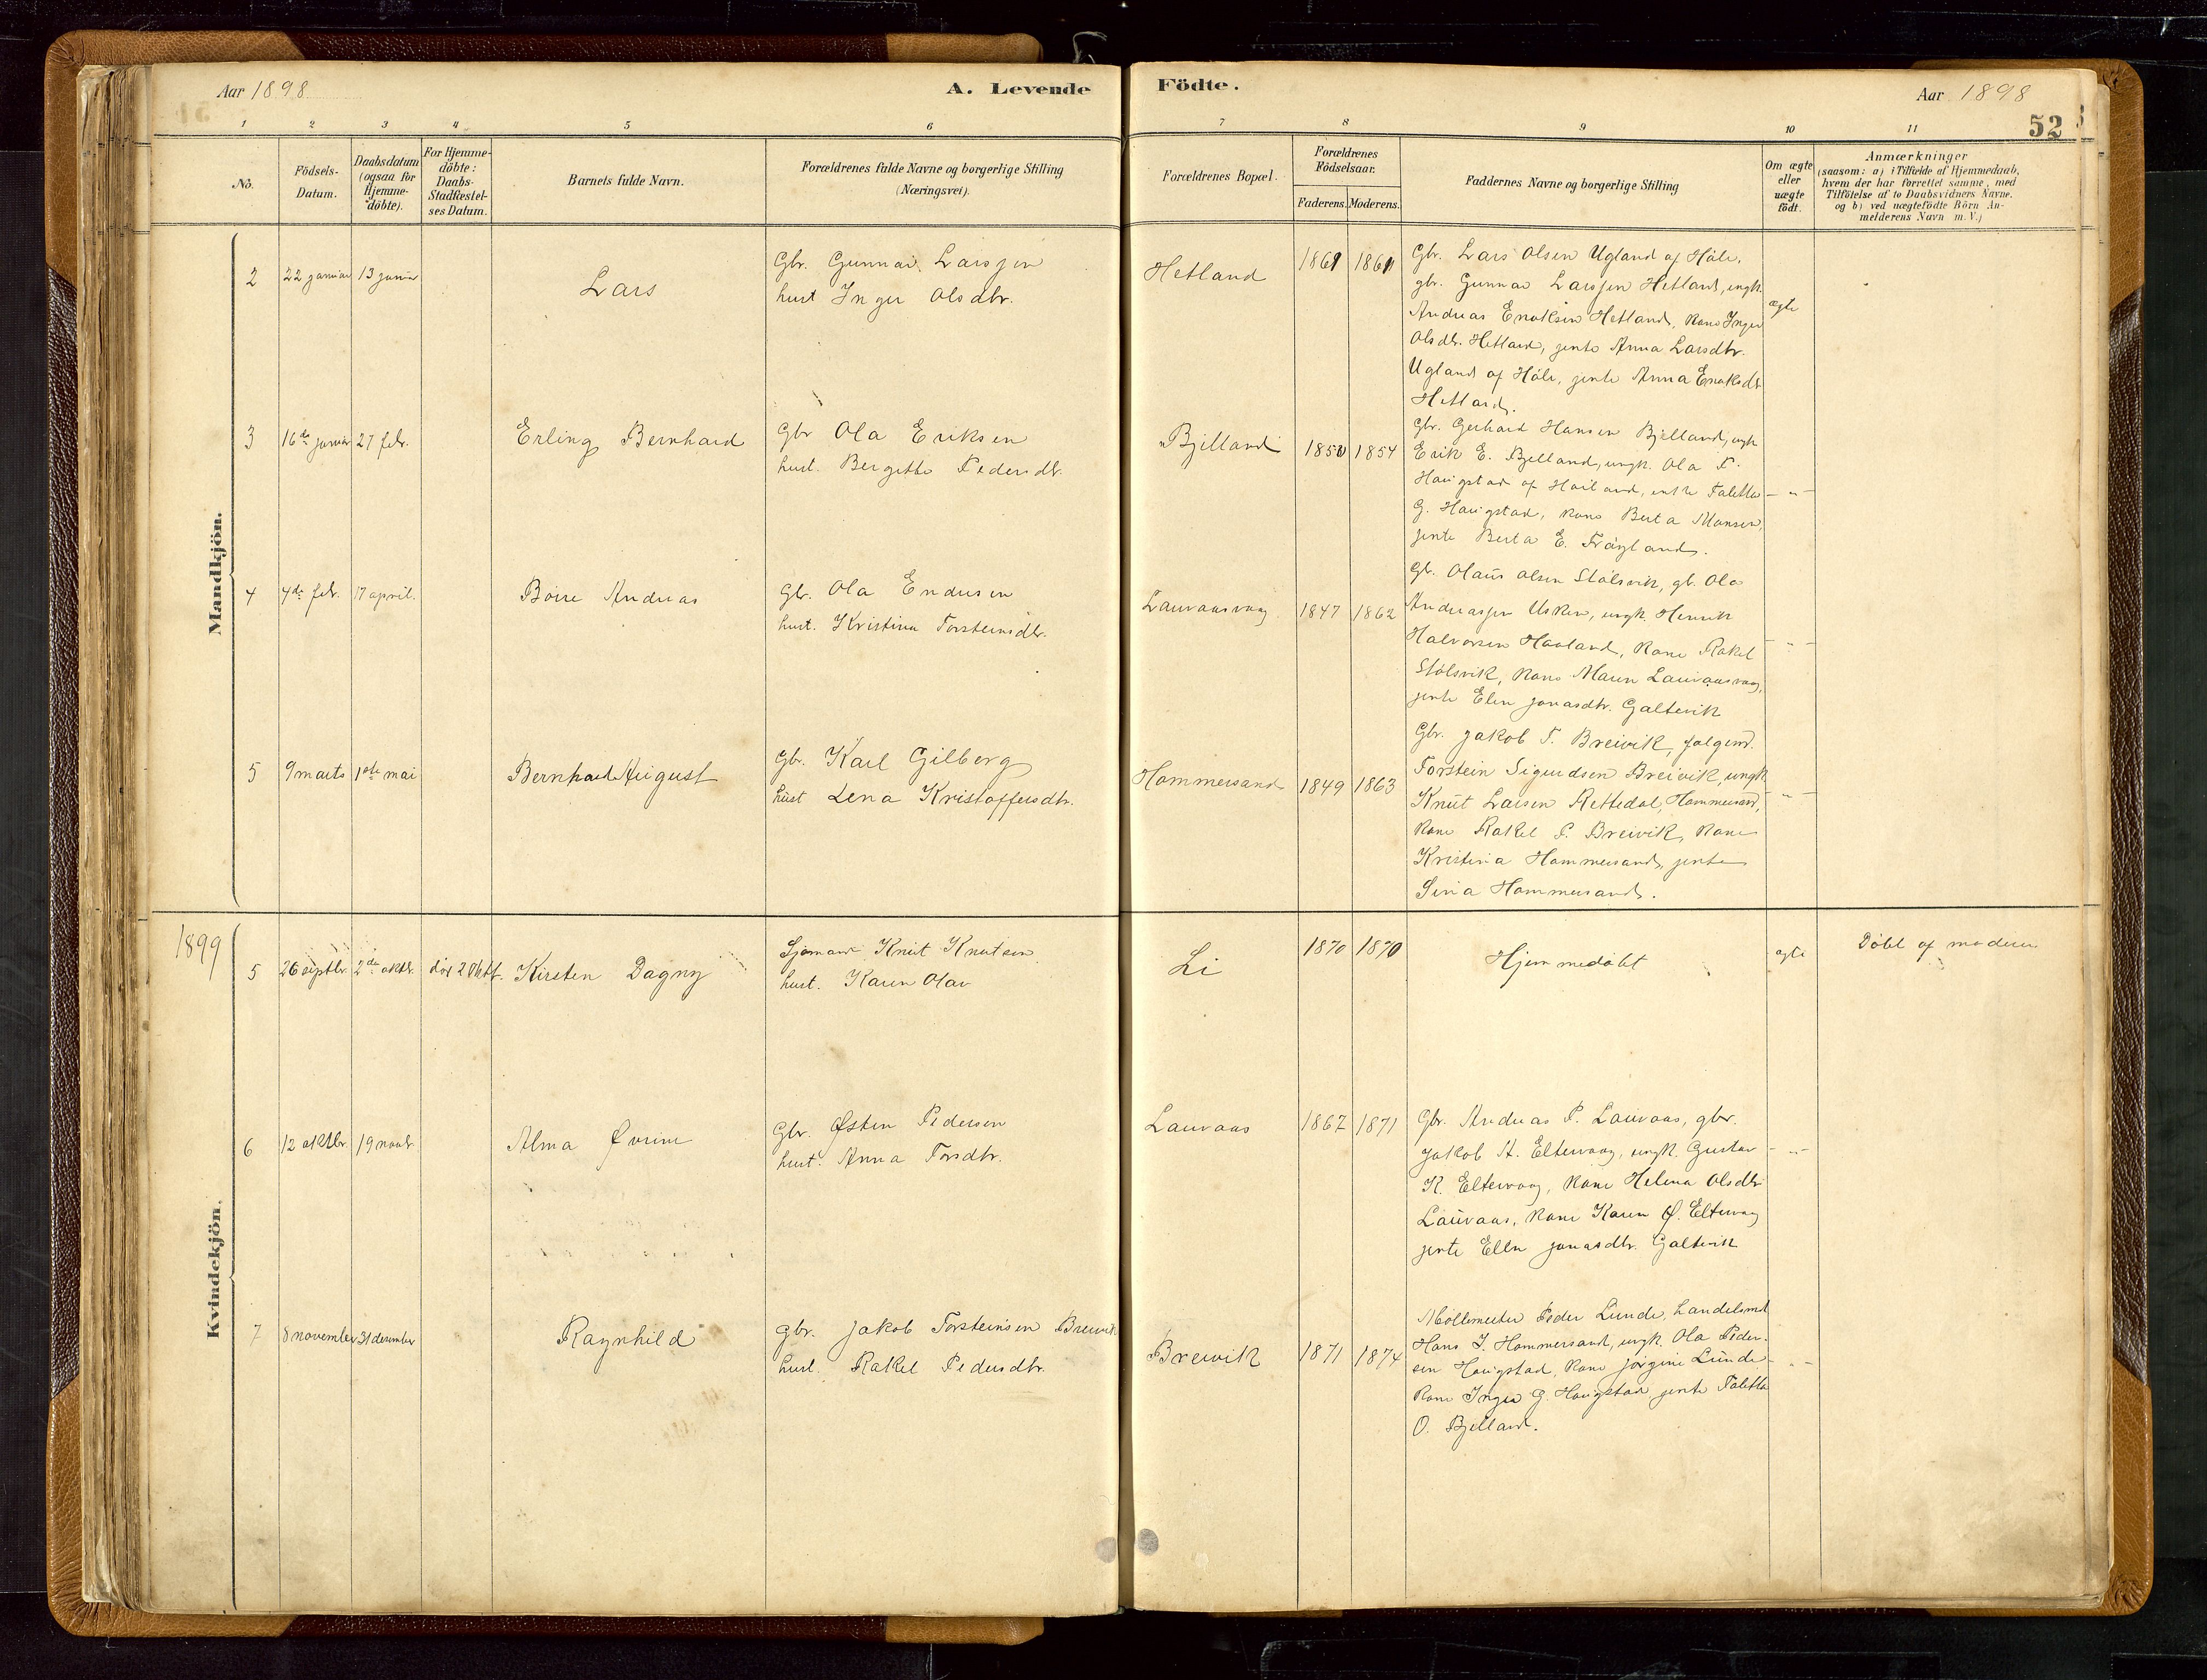 Aar 1898
A. Levende Födte.
Aar 1898
52
1 2 3 4 5 6 7 8 9 10 11
No.
Födsels-
Datum.
Daabsdatum
(ogsaa for
Hjemme-
döbte).
For Hjemme-
döbte:
Daabs-
Stadfæstel-
ses Datum.
Barnets fulde Navn.
Forældrenes fulde Navne og borgerlige Stilling
(Næringsvei).
Forældrenes Bopæl.
Forældrenes
Födselsaar.
Faderens. Moderens.
Faddernes Navne og borgerlige Stilling
Om ægte
eller
uægte
födt.
Anmærkninger
(saasom: a) i Tilfælde af Hjemmedaab,
hvem der har forrettet samme, med
Tilföielse af to Daabsvidners Navne.
og b) ved uægtefödte Börn An-
melderens Navn m. V.)
Mandkjön.
2 22 januar 13 Lars
Gbr. Gunnar Larssen
hust Inger Olsdtr.
Hetland
Gbr. Lars Olsen Ugland af Håle,
gbr. Gunnar Larssen Hetland, ungk.
Andreas Enoksen Hetland, kone Inger
Olsdtr. Hetland, jente Anna Larsdtr.
Ugland af Håle, jente Anna Enoksdtr
Hetland.
ægte
3 16de januar 27 febr. Erling Bernhard
Gbr Ola Eriksen
hust. Bergitte Pedersdtr.
Bjelland
1854
Gbr. Gerhard Hansen Bjelland, ungk
Erik E. Bjelland, ungk. Ola P.
Haugstad af Hailand, Taletta
G. Haugstad, kone Berta Monsen,
jente Berta E. Frøyland.
- " -
4 4de febr. 17 april. Andreas
Gbr. Ola Endresen
hust. Kristina Torsteinsdtr.
Lauvaasvaag
1847 1862
Gbr. Olaus Olsen Stølsvik, gb. Ola
Andreassen Usken, ungk. Henrik
Halvorsen Haaland, kone Rakel
Stølsvik, kone Maren Lauvaasvaag,
jente Elen Jonasdtr. Galtevik
- " -
5 9 marts 1ste mai Bernhard August
Gbr. Karl Gilberg
hust Lena Kristoffersdtr.
Hommersand
1849 1863
Gbr. Jakob T. Breivik, følgem.
Torstein Sigurdsen Breivik, ungk
Knut Larsen Rettedal, Hommersand,
kone Rakel P. Breivik, kone
Kristina Hommersand, jente
Sina Hommersand.
- " -
Kvindekjön.
1899
5 26 septbr. 2de oktbr. Kirsten Dagny
Sjømand Knut Knutsen
hust. Karen Olav
Li
1870 1870
Hjemmedøbt
ægte
Døbt af moderen
6 12 oktbr. 19 novbr. Alma
Gbr. Østen Pedersen
hust. Anna Torsdtr.
Lauvaas
1867 1871
Gbr. Andreas P. Lauvaas, gbr.
Jakob A. Eltervaag, ungk. Gustav
K. Eltervaag, kone Helena Olsdtr
Lauvaas, kone Karen Ø. Eltervaag
jente Ellen Jonasdtr. Galtevik
- " -
7 8 november 31 desember Ragnhild
gbr. Jakob Torsteinsen Breivik
hust. Rakel Pedersdtr.
Breivik
1871 1874
Møllemester Peder Lunde, handelsmd
Hans J. Hommersand, ungk. Ola Peder-
sen Haugstad, kone Jørgine Lunde
kone Inger G. Haugstad, jente Taletta
O. Bjelland.
- " -